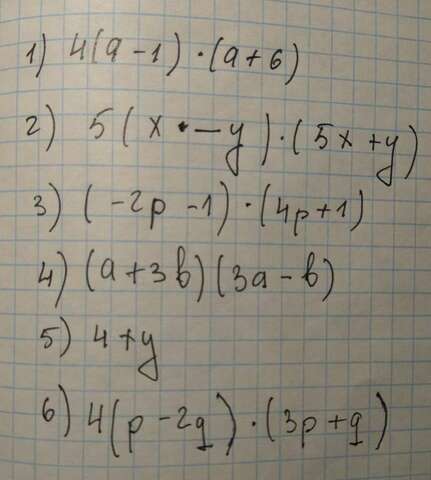 1) 4(a-1)·(a+6)
2) 5(x·-y)·(5x+y)
3) (-2p-1)·(4p+1)
4) (a+3b)(3a-b)
5) 4+y
6) 4(p-2q)·(3p+q)